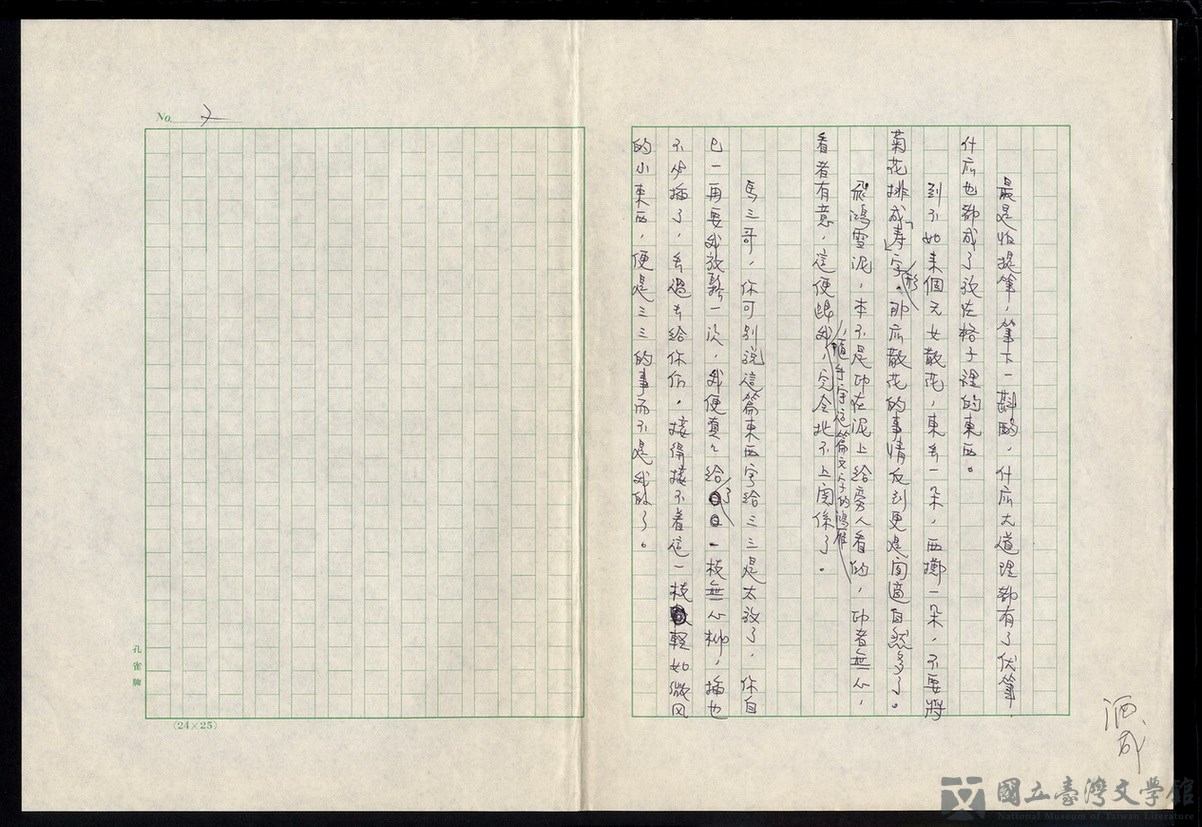 最是怕提筆，筆下一斟酌，什底大道理都有了伏筆，
什底也都成了放在格子裡的東西。
到不如來個天女散花，東丢一朵，西擲一朵，不要將
菊花排成「壽」字形。那底散花的事情反到更是閒適自然多了。
飛鴻雪泥，本不是印在泥上給旁人看的，印者無心，
，隨手寫這篇文字的鴻雁
看者有意，這便與我，完全扯不上関係了。
馬三哥，你可别説這篇東西字給三三是太放了，你自
已一再要我放鬆一次，我便真真給了一枝無心柳，插也
不必插了，丢過去給你們，接得接不着這一枝輕如微风
的小東西，便是三三的事而不是我的了。
No. 7
孔雀牌
(24×25)
國立臺灣文學館
National Museum of Taiwan Literature